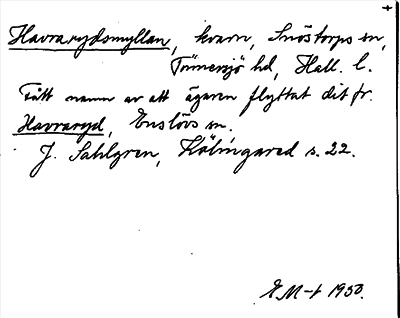 Havrarydsmyllan, kvarn, Snöstorps sn,
Tönnersjö hd, Hall. l.
Fått namn av att ägaren flyttat dit fr.
Havraryd, Enslövs sn.
J. Sahlgren, Kölingared s. 22.
E M-t 1950.